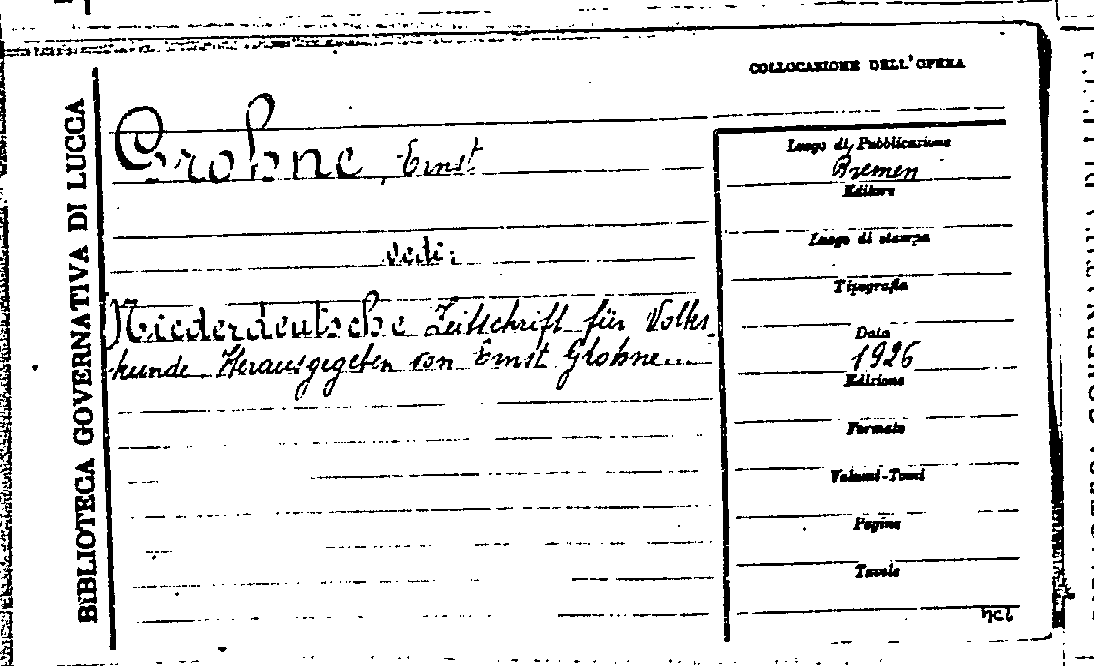 COLLOCAZIONE DELL'OPERA
BIBLIOTECA GOVERNATIVA DI LUCCA
Grohne, Ernst
vedi:
Niederdeutsche Zeitschrift für Volks
kunde Herausgegeben von Ernst Glohne...
Luogo di Pubblicazione
Bremen
Editore
Luogo di stampa
Tipografia
Data
1926
Edizione
Formato
Volumi-Tomi
Pagine
Tavole